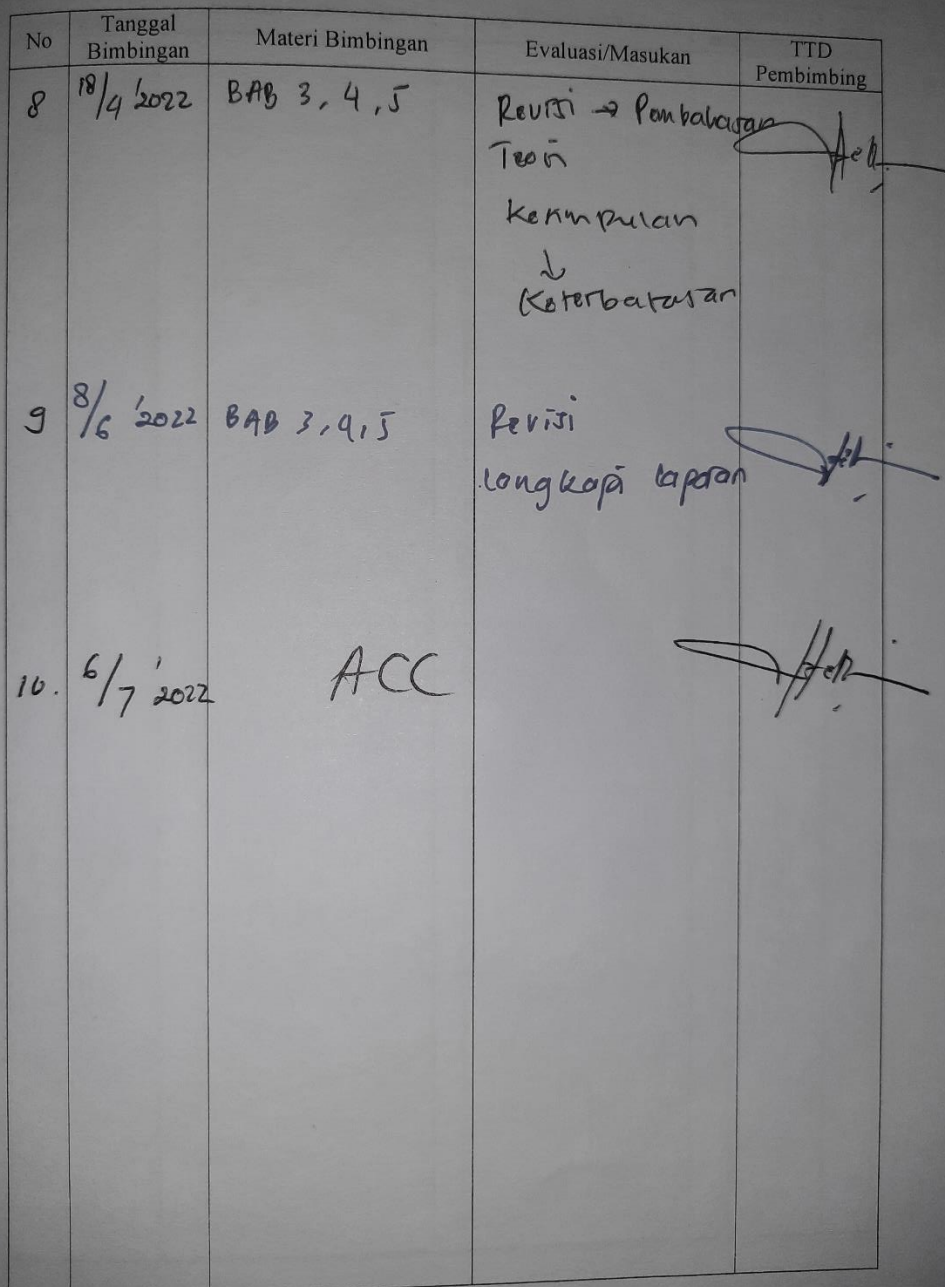 No Tanggal Bimbingan Materi Bimbingan Evaluasi/Masukan TTD Pembimbing
8 18/4 '2022 BAB 3, 4, 5 Revisi → Pembahasan
Teori
Kesimpulan
↓
Keterbatasan
9 8/6 '2022 BAB 3, 4, 5 Revisi
Lengkapi laporan
10. 6/7 '2022 ACC